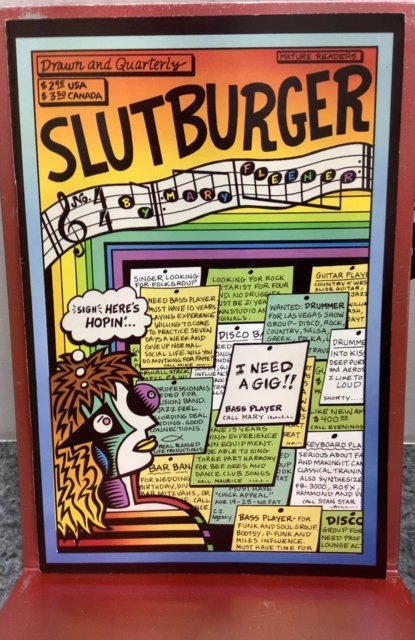 Drawn and Quarterly
MATURE READERS
$2.95 USA
$3.50 CANADA
SLUTBURGER
No. 4 BY MARY FLEENER
*SIGH* HERE'S
HOPIN'...
SINGER LOOKING
FOR FOLK GROUP
NEED BASS PLAYER
MUST HAVE 10 YEARS
PLAYING EXPERIENCE
WILLING TO COME
TO PRACTICE SEVEN
DAYS A WEEK AND
GIVE UP NORMAL
SOCIAL LIFE. WILL YOU
DO ANYTHING FOR FAME
CALL MIKE
LOOKING FOR ROCK
GUITARIST FOR FOUR
NO DRUGGIES
MUST BE 21 YEARS
STUDIO AND
GUITAR PLAYER
COUNTRY N' WEST
SLIDE GUITAR,
WANTED: DRUMMER
FOR LAS VEGAS SHOW
GROUP - DISCO, ROCK,
COUNTRY, SALSA,
GREEK, POLKA,
DISCO BA
DRUMMER
INTO KISS
DEEP PURP
AND AEROS
I LIKE TO
LOUD
SHORTY
I NEED
A GIG!!
BASS PLAYER
CALL MARY
MARSHALL STACK
PROFESSIONALS
NEEDED FOR
FUSION BAND.
JAZZ FEEL.
RECORDING DEAL
PENDING. GOOD
CONNECTIONS.
REAL BASSED
LIFE PRODUCTIONS
LIKE NEW AM
$400.00
CALL EVENINGS
15 YEARS
PLAYING EXPERIENCE
OWN EQUIPMENT.
BE ABLE TO SING
THREE PART HARMONY
FOR BEE GEES AND
DANCE CLUB SONGS.
CALL MAURICE
KEYBOARD PLAY
SERIOUS ABOUT FA
AND MAKING IT. CAN
CLASSICAL TRAININ
ALSO SYNTHESIZE
HAMMOND AND
CALL STAN STAR
BAR BAN
FOR WEDDING
BIRTHDAY, DIV
BAR MITZVAHS, OR
CALL
MUST HAVE
"CHICK APPEAL"
AGE 19-25 - NO FAT
C.I.
AGENCY
BASS PLAYER - FOR
FUNK AND SOUL GROUP.
BOOTSY, P-FUNK AND
MILES INFLUENCE.
MUST HAVE TIME FOR
DISCO
GROUP FOR
NEED PROF
LOUNGE ACT